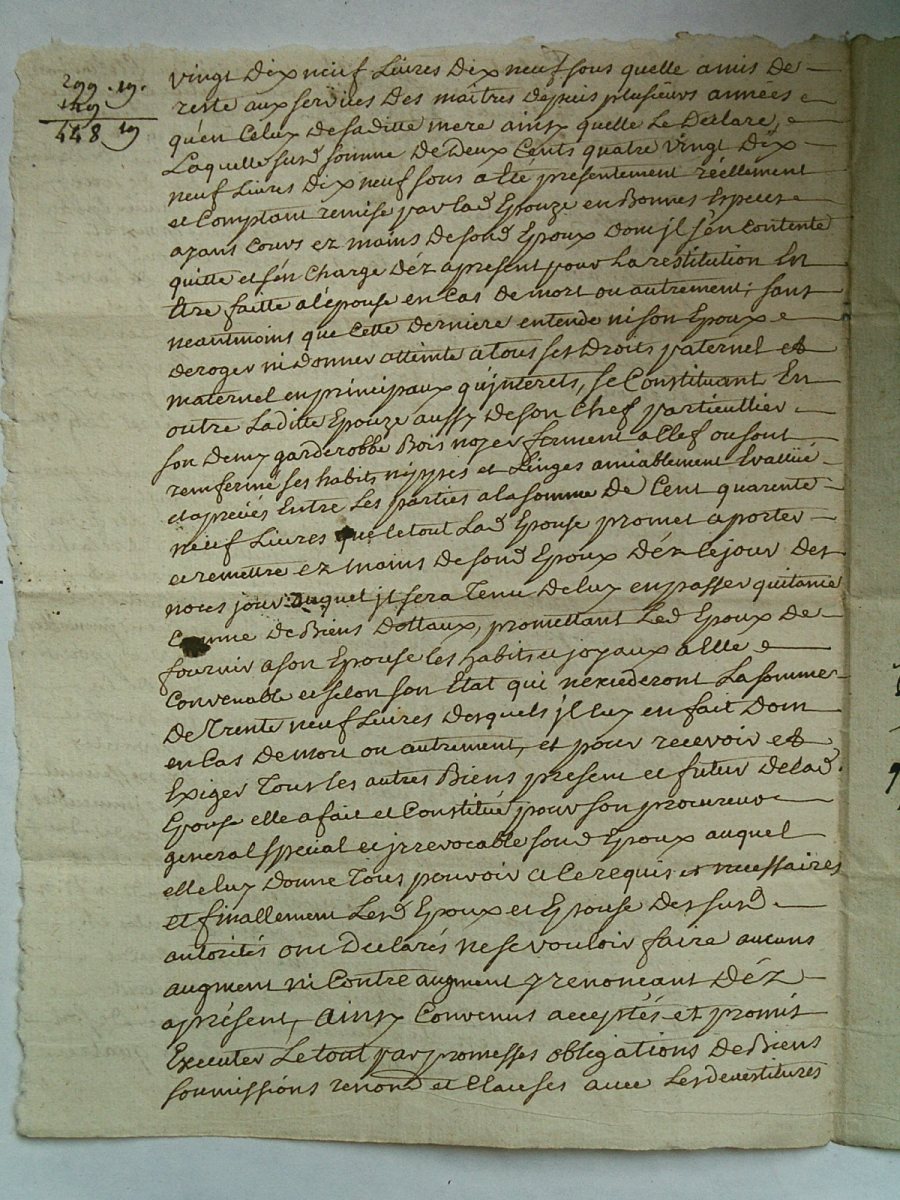 299 . 19.
149
448 19
vingt Dix neuf Livres Dix neuf sous quelle a mis de
reste aux services des maîtres depuis plusieurs annees
qu'en Celux de saditte mere ainsy quelle Le Declare,
Laquelle susd. somme De Deux Cents quatre vingt Dix
neuf Livres Dix neuf sous a été presentement réellement
et Comptant remise par lad. Epouze en Bonnes Especes
ayans Cours ez mains de sond. Epoux Dont jl s'en Contente
quitte et s'en Charge déz apresent pour La restitution En
Etre faitte a l'épouse en Cas de mort ou autrement; sans
neantmoins que Cette derniere entende ni son Epoux
deroger ni Donner atteinte a tous ses Droits paternel et
maternel en principaux qu'jnterets, se Constituant En
outre Laditte Epouze aussy de son Chef particullier
son demy garderobbe Bois noyer ferment a Clef ou sont
remfermé ses habits nippes et Linges amiablement Evallué
et apreciés Entre Les parties a la somme De Cent quarente
neuf Livres que le tout Lad. Epouse promet aporter
et remettre ez mains de sond. Epoux Déz le jour des
noces jour auquel jl sera Tenu De luy en passer quitance
Comme de Biens Dottaux, promettant Led. Epoux De
fournir a son Epouse les habits et joyaux a Elle
Convenable et selon son Etat qui n'exederont La somme
De Trente neuf Livres desquels jl luy en fait Dom
en Cas de mort ou autrement, et pour recevoir et
Exiger Tous les autres Biens present et futur de lad.
Epouse elle a fait et Constitué pour son procureur
general special et jrrevocable sond. Epoux auquel
elle luy Donne Tous pouvoir a le requis et necessaires
et finallement Lesd. Epoux et Epouse des susd.
autorités ont Declarés ne se vouloir faire aucuns
augment ni Contre augment y renoncant Déz
aprésent, Ainsy Convenus acceptés et promis
Executer Le tout par promesses obligations de Biens
soumissions renond. et Clauses avec Les devestitures